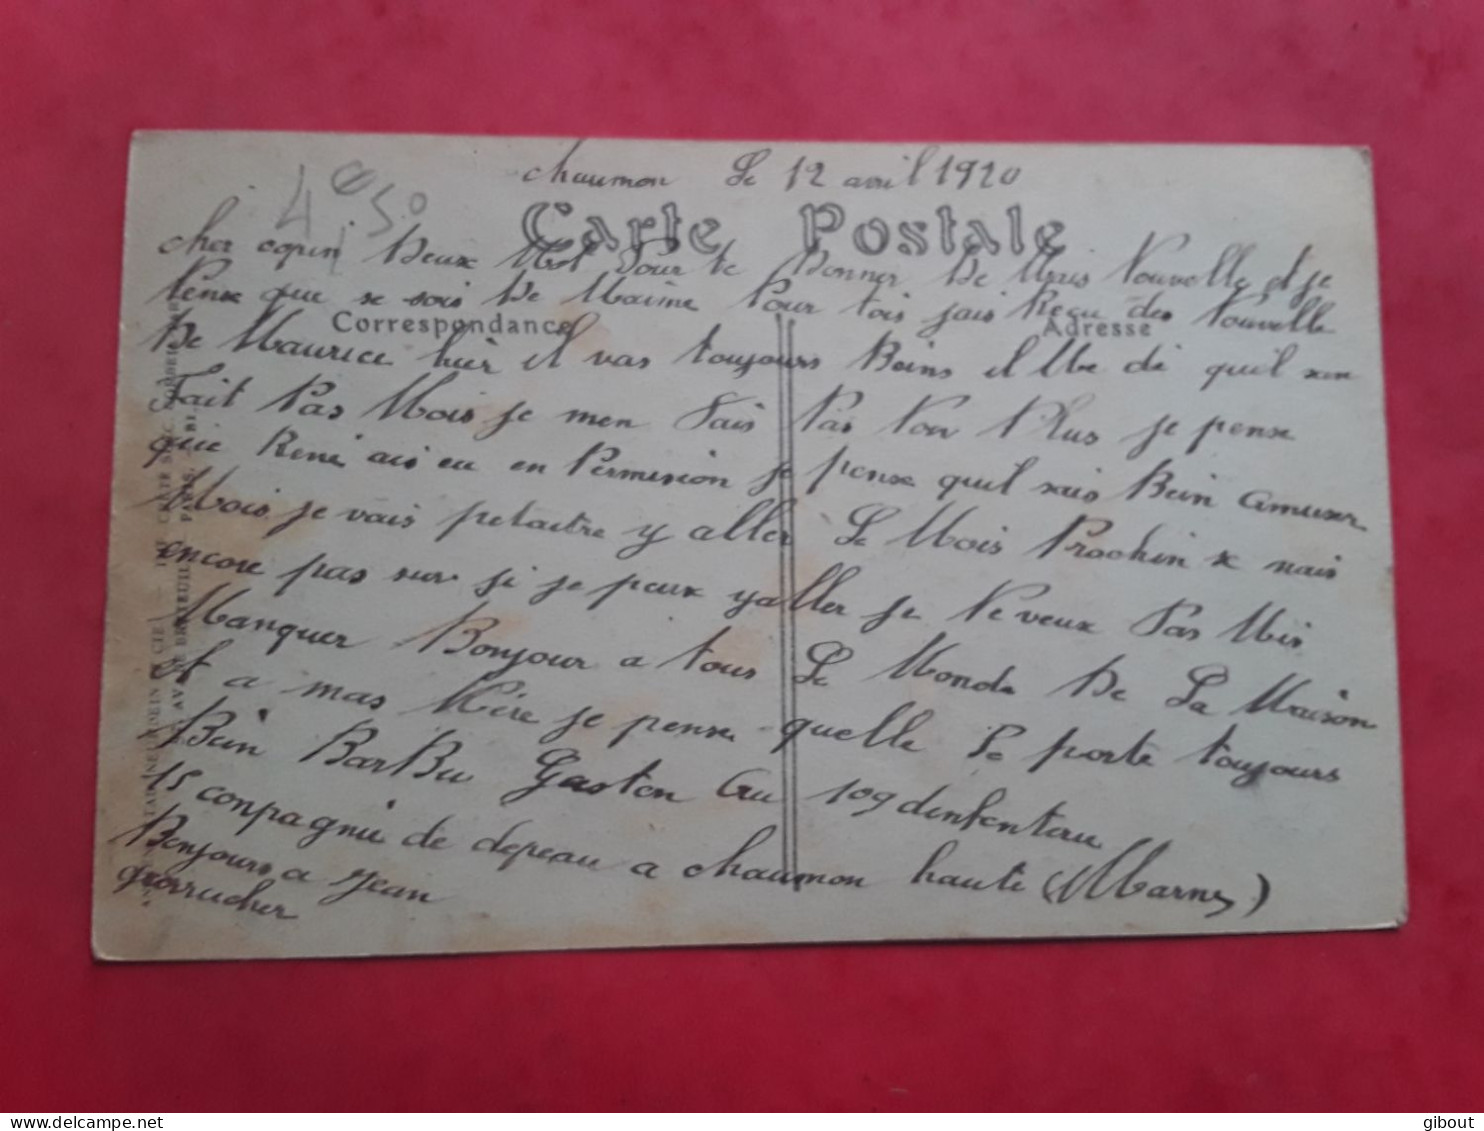 chaumon Le 12 avril 1920
4e50
Carte Postale
cher copin Deux Mot Pour te Donner De Mais Nouvelle et je
Pense que se sois De Maime Pour tois jais Reçu des Nouvelle
Correspondance Adresse
De Maurice hièr il vas toujours Beins il Me di quil sen
Fait Pas Mois je men Fais Pas Non Plus je pense
que René ais eu en Permision je pense quil sais Bein amuser
Mois je vais petaitre y aller Le Mois Prochin x mais
encore pas sur si je peux y aller je Ne veux Pas Mis
Manquer Bonjour a tous Le Monde De La Maison
et a mas Mère je pense quelle Se porte toujours
Bein BarBu Gaston Au 109 dinfentau
15 conpagnie de depeau a chaumon haute (Marne)
Bonjours a jean